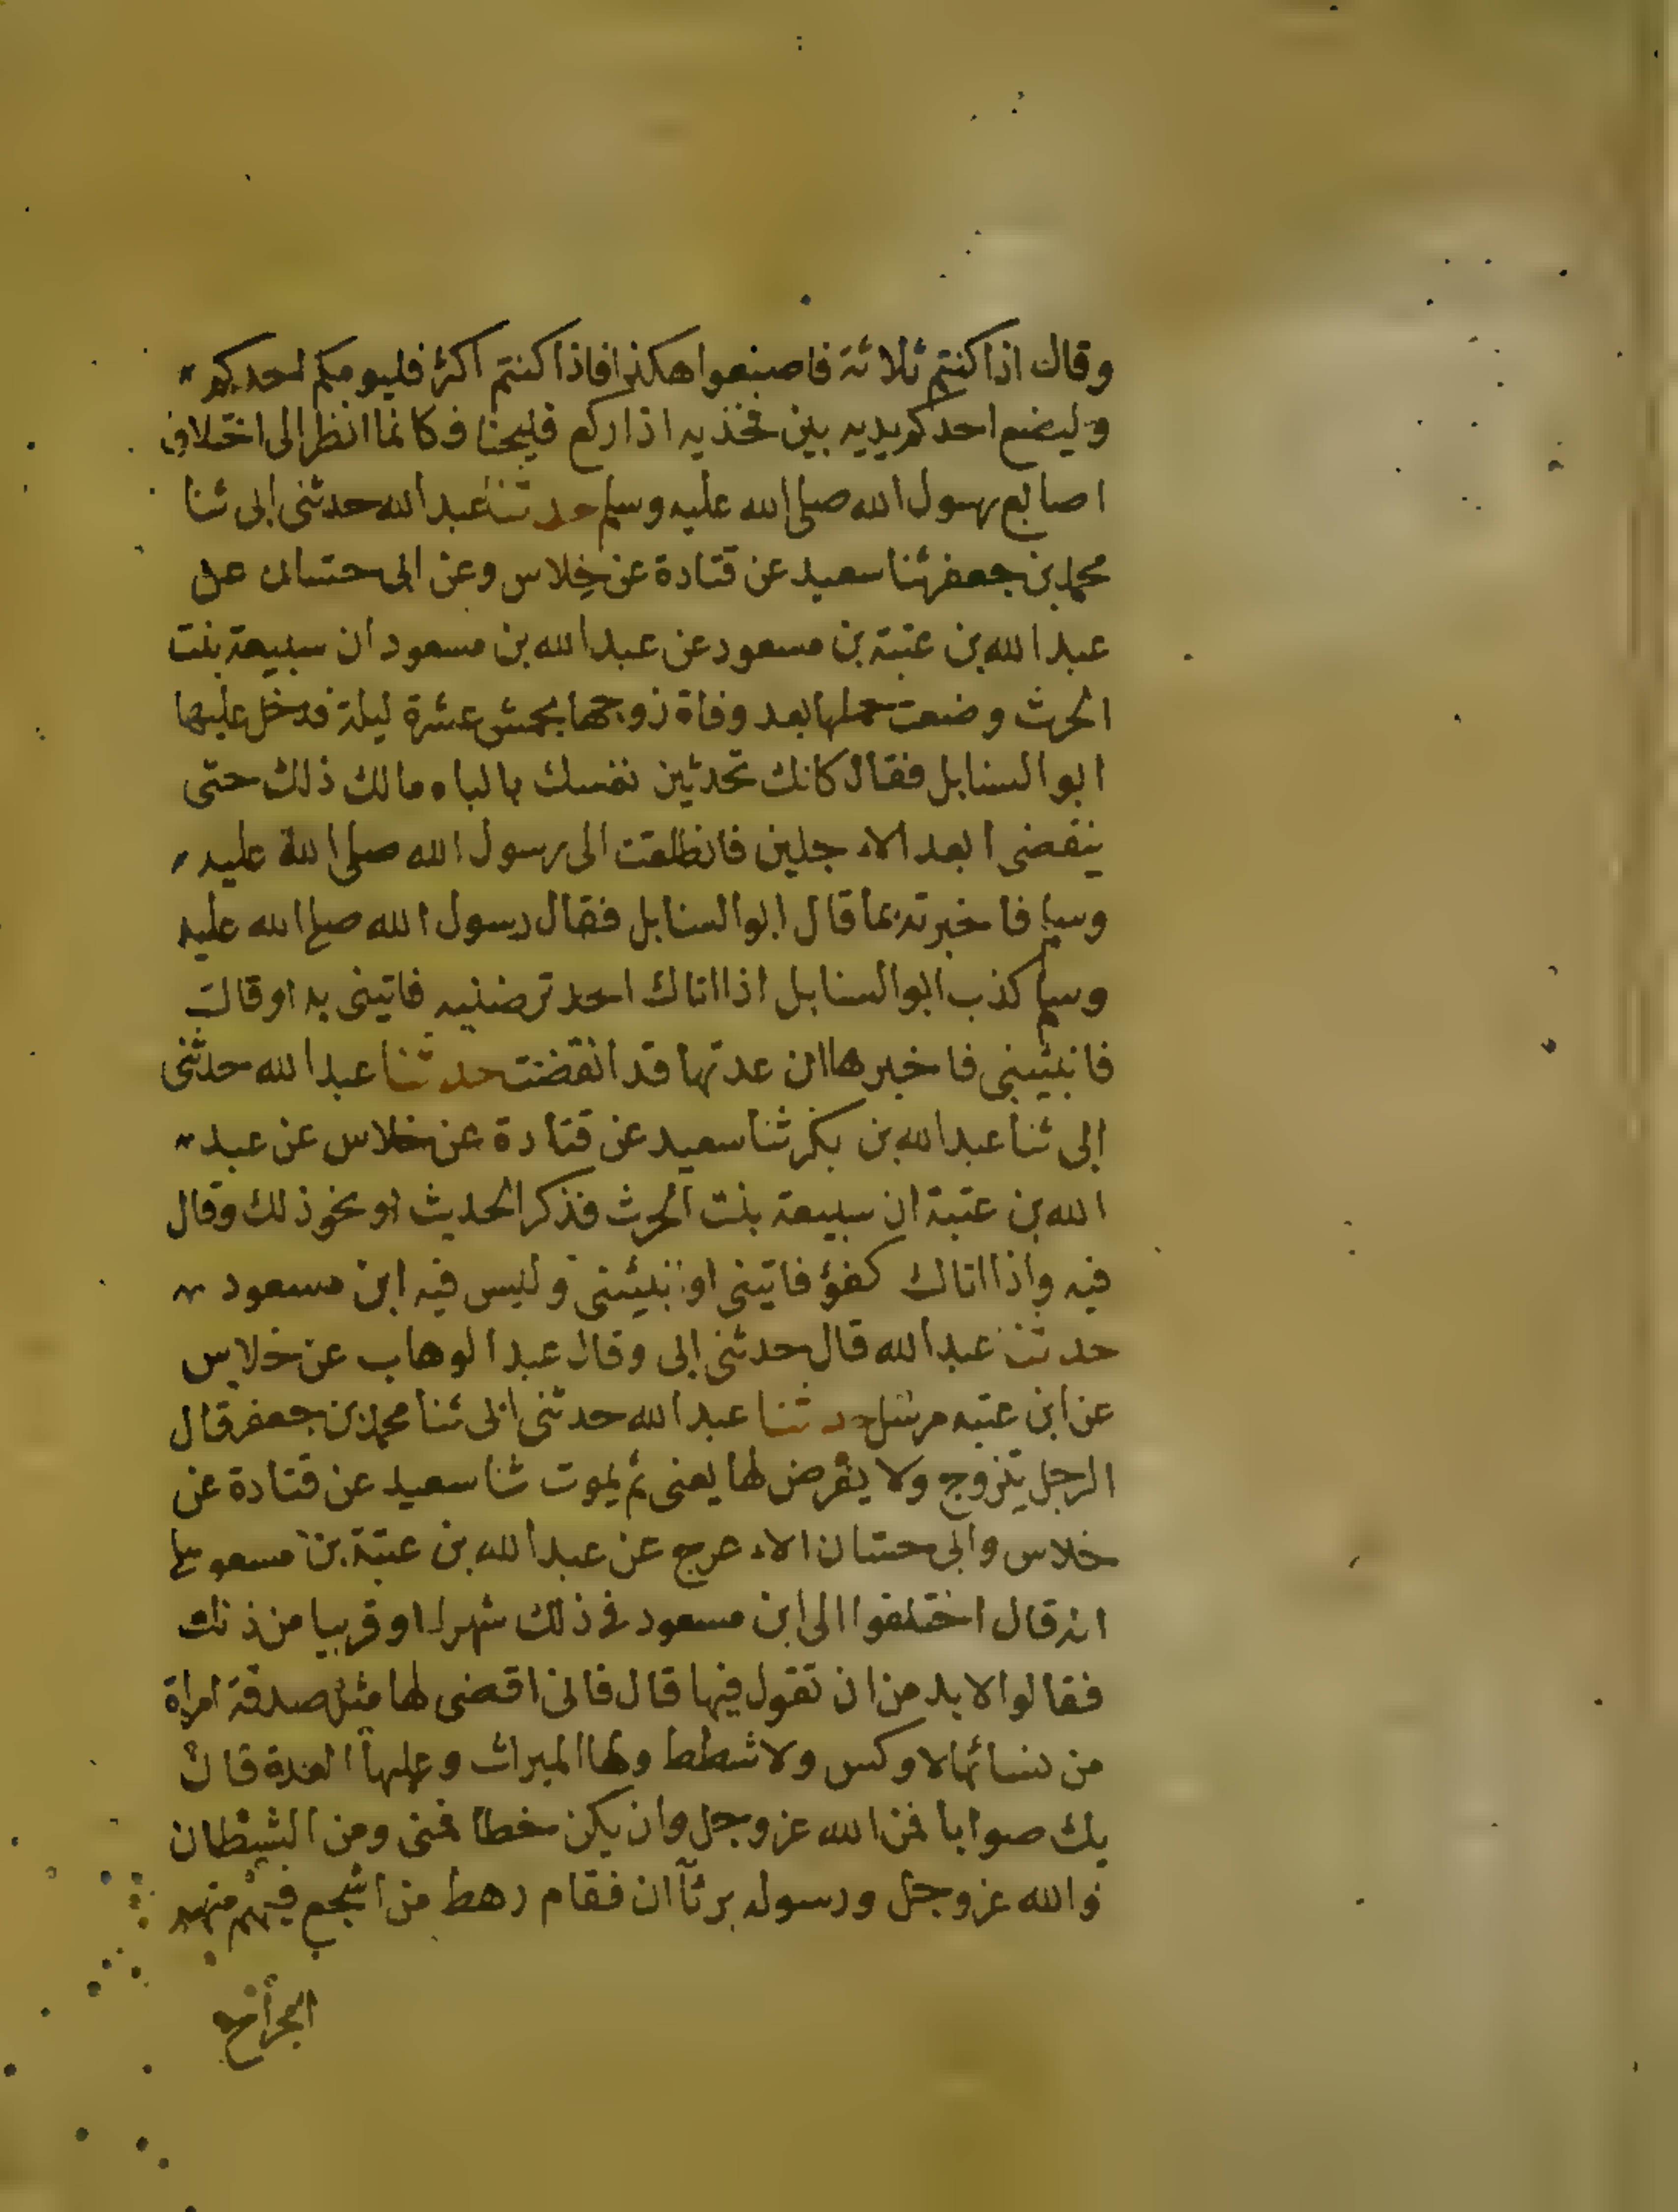 وقال اذا كنتم ثلاثة فاصنعوا هكذا فاذا كنتم اكثر فليومكم احدكم
وليضع احدكم يديه بين فخذيه اذا ركع فليحنا فكانما انظر الى اختلاف
اصابع رسول الله صلى الله عليه وسلم حدثنا عبد الله حدثني ابي ثنا
محمد بن جعفر ثنا سعيد عن قتادة عن خلاس وعن ابي حسان عن
عبد الله بن عتبة بن مسعود عن عبد الله بن مسعود ان سبيعة بنت
الحرث وضعت حملها بعد وفاة زوجها بخمس عشرة ليلة فدخل عليها
ابو السنابل فقال كانك تحدثين نفسك بالباه مالك ذلك حتى
ينقضى ابعد الاجلين فانطلقت الى رسول الله صلى الله عليه
وسلم فاخبرته بما قال ابو السنابل فقال رسول الله صلى الله عليه
وسلم كذب ابو السنابل اذا اتاك احد ترضنيه فاتيني به او قالت
فانبئيني فاخبرها ان عدتها قد انقضت حدثنا عبد الله حدثني
ابي ثنا عبد الله بن بكر ثنا سعيد عن قتادة عن خلاس عن عبد
الله بن عتبة ان سبيعة بنت الحرث فذكر الحديث او نحو ذلك وقال
فيه واذا اتاك كفؤ فاتيني او نبئيني وليس فيه ابن مسعود
حدثنا عبد الله قال حدثني ابي وقال عبد الوهاب عن خلاس
عن ابن عتبه مرسل حدثنا عبد الله حدثني ابي ثنا محمد بن جعفر قال
الرجل يتزوج ولا يفرض لها يعنى ثم يموت ثنا سعيد عن قتادة عن
خلاس وابي حسان الاعرج عن عبد الله بن عتبة بن مسعود
انه قال اختلفوا الى ابن مسعود في ذلك شهرا او قريبا من ذلك
فقالوا لا بد من ان تقول فيها قال فاني اقضى لها مثل صدقة امراة
من نسائها لا وكس ولا شطط ولها الميراث وعليها العدة فان
يك صوابا فمن الله عز وجل وان يكن خطا فمني ومن الشيطان
والله عز وجل ورسوله برئآان فقام رهط من اشجع فيهم
الجراح